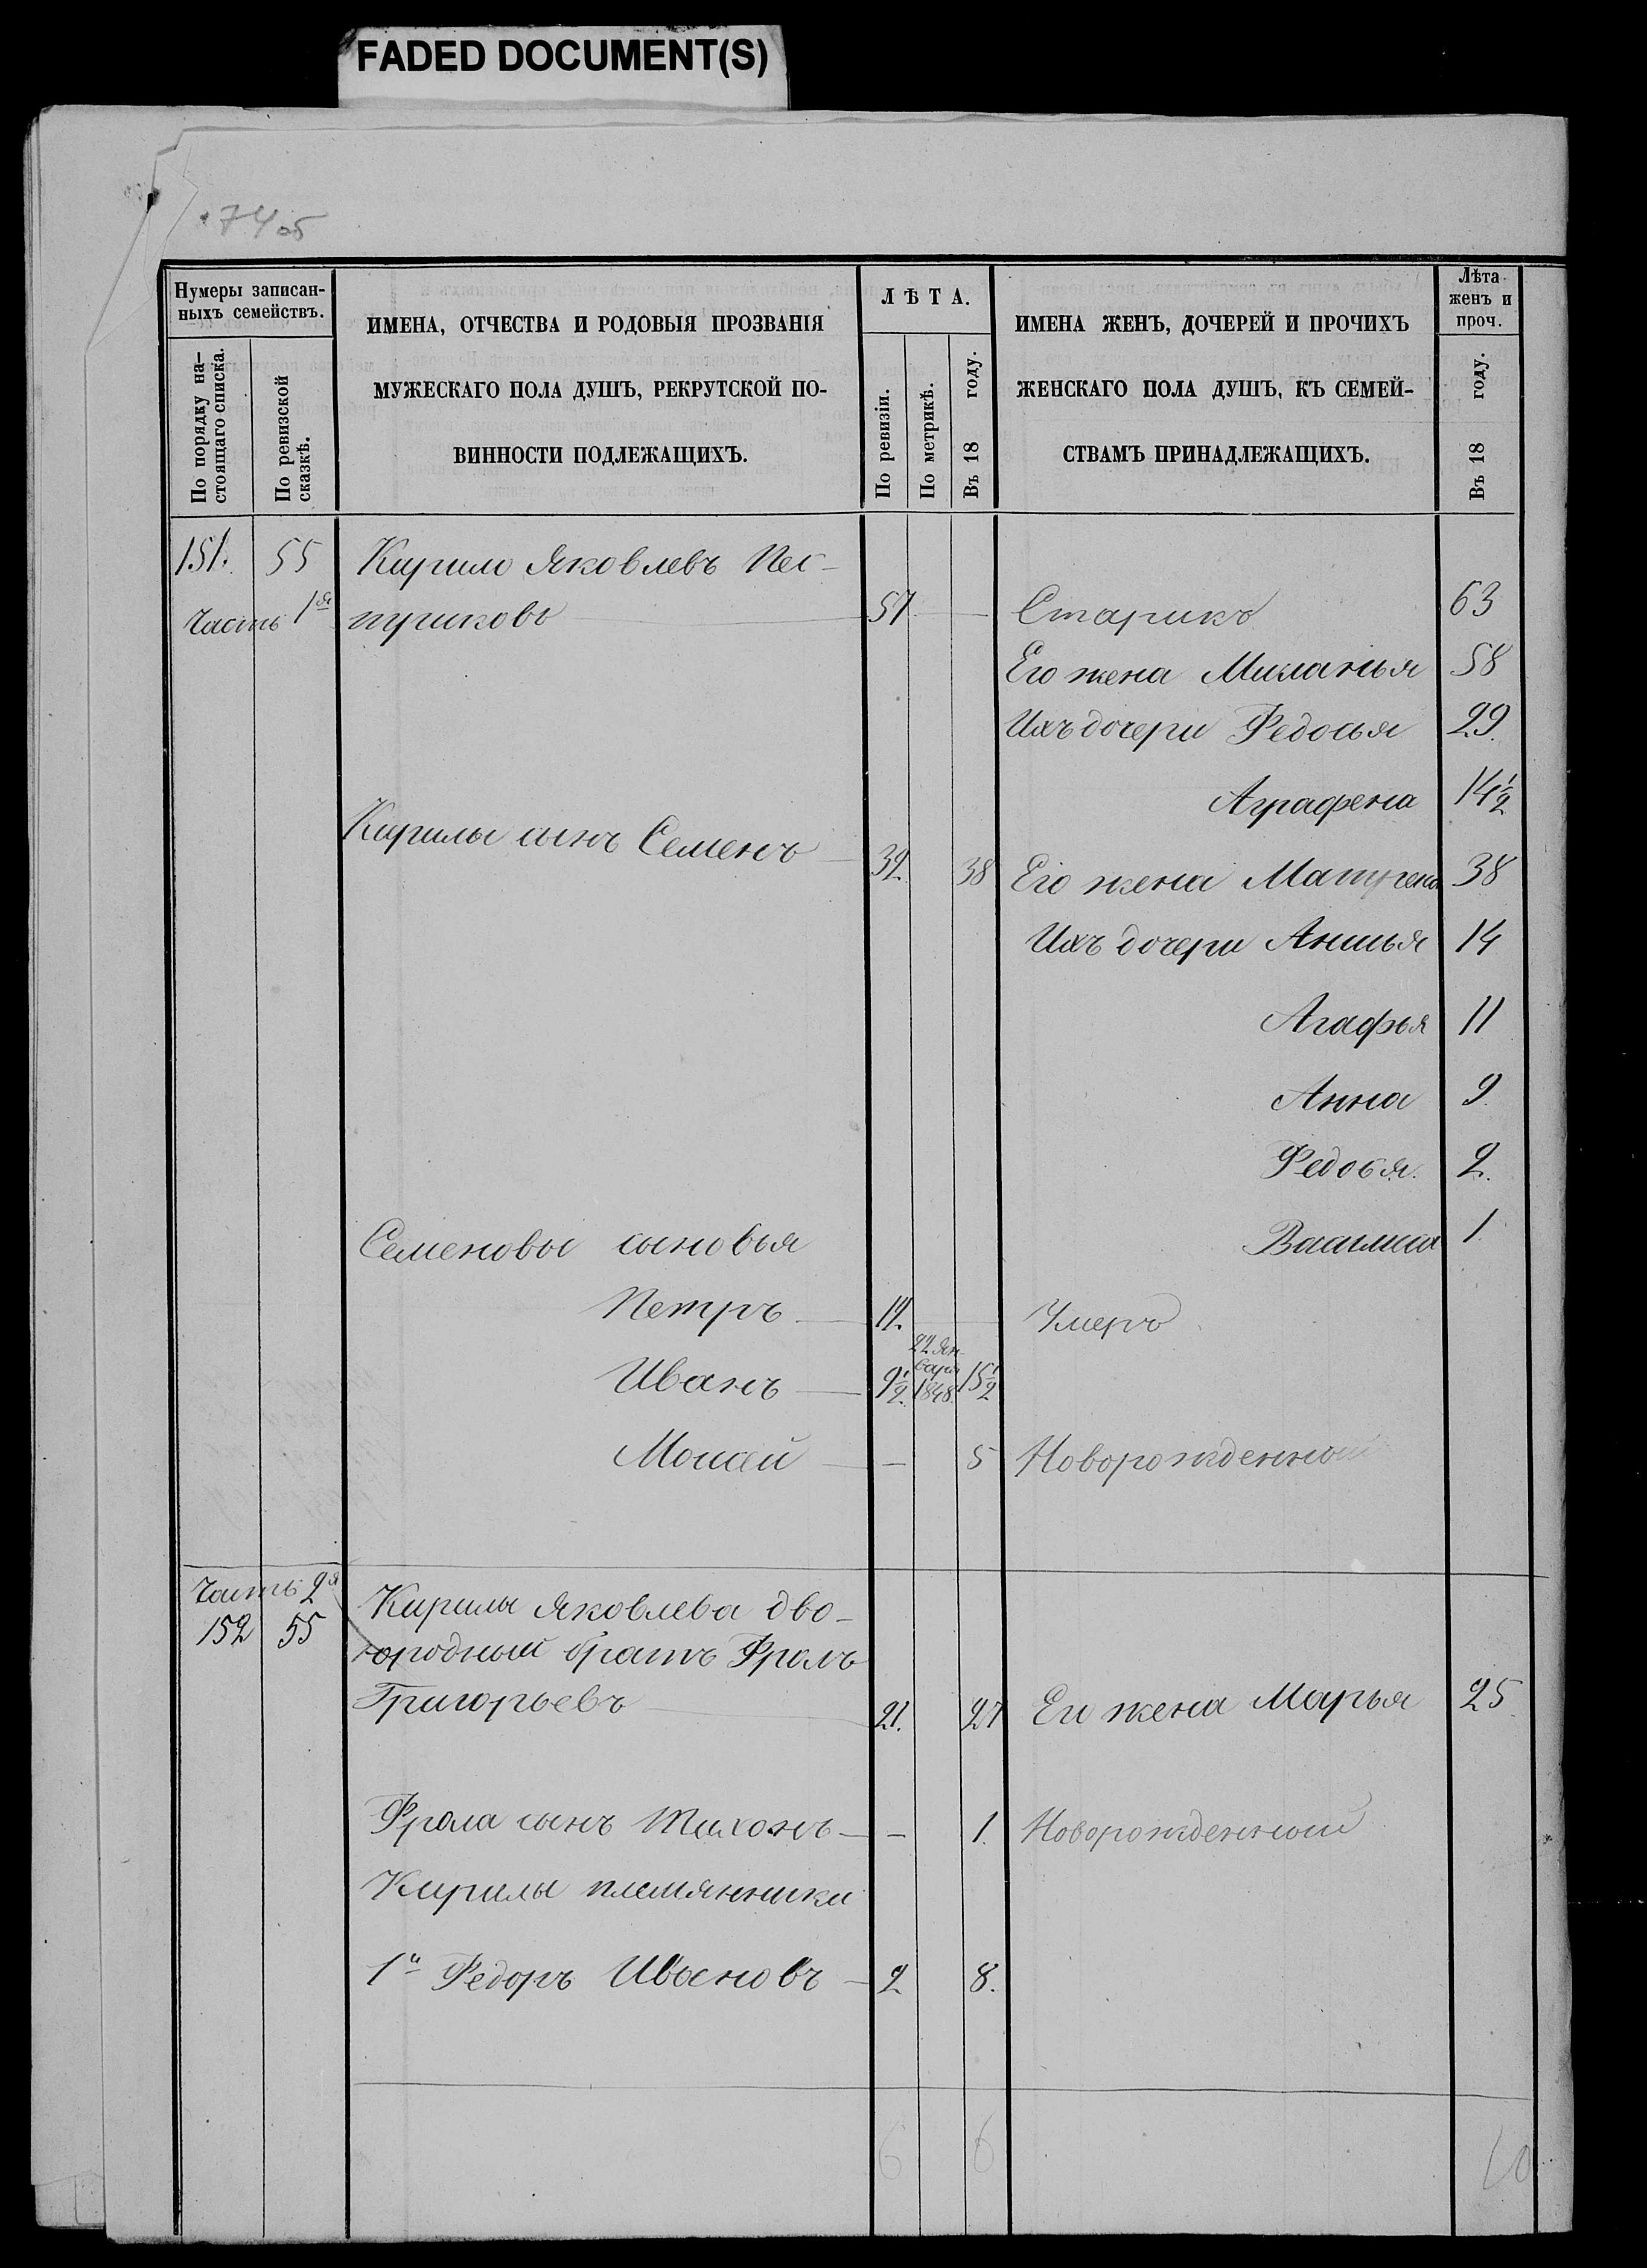 FADED DOCUMENT(S)
74 об
Нумеры записан-
ныхъ семействъ.
По порядку на-
стоящаго списка.
По ревизской
сказкѣ.
ИМЕНА, ОТЧЕСТВА И РОДОВЫЯ ПРОЗВАНІЯ
МУЖЕСКАГО ПОЛА ДУШЪ, РЕКРУТСКОЙ ПО-
ВИННОСТИ ПОДЛЕЖАЩИХЪ.
ЛѢТА.
По ревизіи.
По метрикѣ.
Въ 18 году.
ИМЕНА ЖЕНЪ, ДОЧЕРЕЙ И ПРОЧИХЪ
ЖЕНСКАГО ПОЛА ДУШЪ, КЪ СЕМЕЙ-
СТВАМЪ ПРИНАДЛЕЖАЩИХЪ.
Лѣта
женъ и
проч.
Въ 18 году.
151. 55 Кирило Яковлевъ Пес-
Часть 1я пуриковъ 57 Старикъ 63
Его жена Миланья 58
Ихъ дочери Федосья 29.
Аграфена 14½
Кирилы сынъ Семенъ 32. 38 Его жена Матрена 38
Ихъ дочери Анисья 14
Агафья 11
Анна 9
Федосья. 2.
Семеновы сыновья Василиса 1
Петръ 12. Умеръ
Иванъ 9½. 22 Ян-
варя
1848. 15½
Моисей — 5 Новорожденный
Часть 2я
152 55 Кирилы Яковлева дво-
юродный братъ Фролъ
Григорьевъ 21. 27 Его жена Марья 25
Фрола сынъ Тихонъ — 1. Новорожденный
Кирилы племянники
1й Федоръ Ивановъ 2 8.
6 6 10